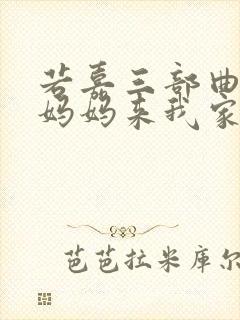 若嘉三部曲
妈妈来我家
芭芭拉米库尔